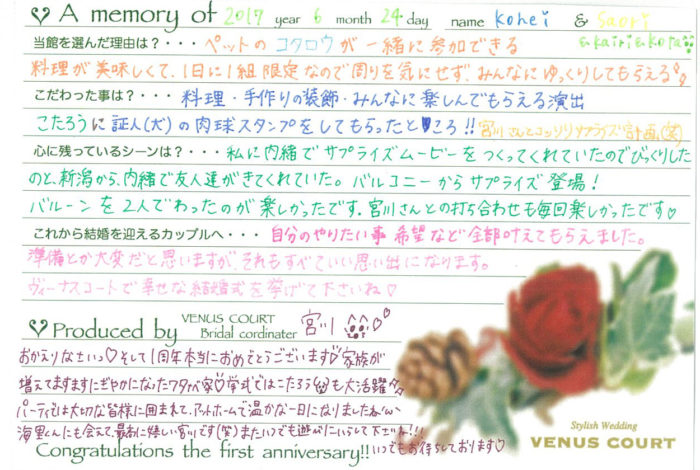 A memory of 2017 year 6 month 24 day name Kohei & Saori
& kairi & kota
当館を選んだ理由は?・・・ペットのコタロウが一緒に参加できる
料理が美味しくて、1日に1組限定なので周りを気にせず、みんなにゆっくりしてもらえる
こだわった事は?・・・料理・手作りの装飾・みんなに楽しんでもらえる演出
こたろうに証人(犬)の肉球スタンプをしてもらったところ!! 宮川さんとコッソリサプライズ計画(笑)
心に残っているシーンは?・・・私に内緒でサプライズムービーをつくってくれていたのでびっくりした
のと、新潟から、内緒で友人達がきてくれていた。バルコニーからサプライズ登場!
バルーンを2人でわったのが楽しかったです。宮川さんとの打ち合わせも毎回楽しかったです♡
これから結婚を迎えるカップルへ・・・自分のやりたい事 希望など全部叶えてもらえました。
準備とか大変だと思いますが、それもすべていい思い出になります。
ヴィーナスコートで幸せな結婚式を挙げて下さいね♡
Produced by VENUS COURT Bridal cordinater 宮川
おかえりなさいっ♡そして1周年本当におめでとうございます♡家族が
増えてますますにぎやかになったワタが家♡挙式ではこたろうくんも大活躍
パーティでは大切な皆様に囲まれて、アットホームで温かな一日になりましたね
海里くんにも会えて、最高に嬉しい宮川です(笑)またいつでも遊びにいらして下さいね!!
Congratulations the first anniversary!! いつでもお待ちしております♡
Stylish Wedding
VENUS COURT